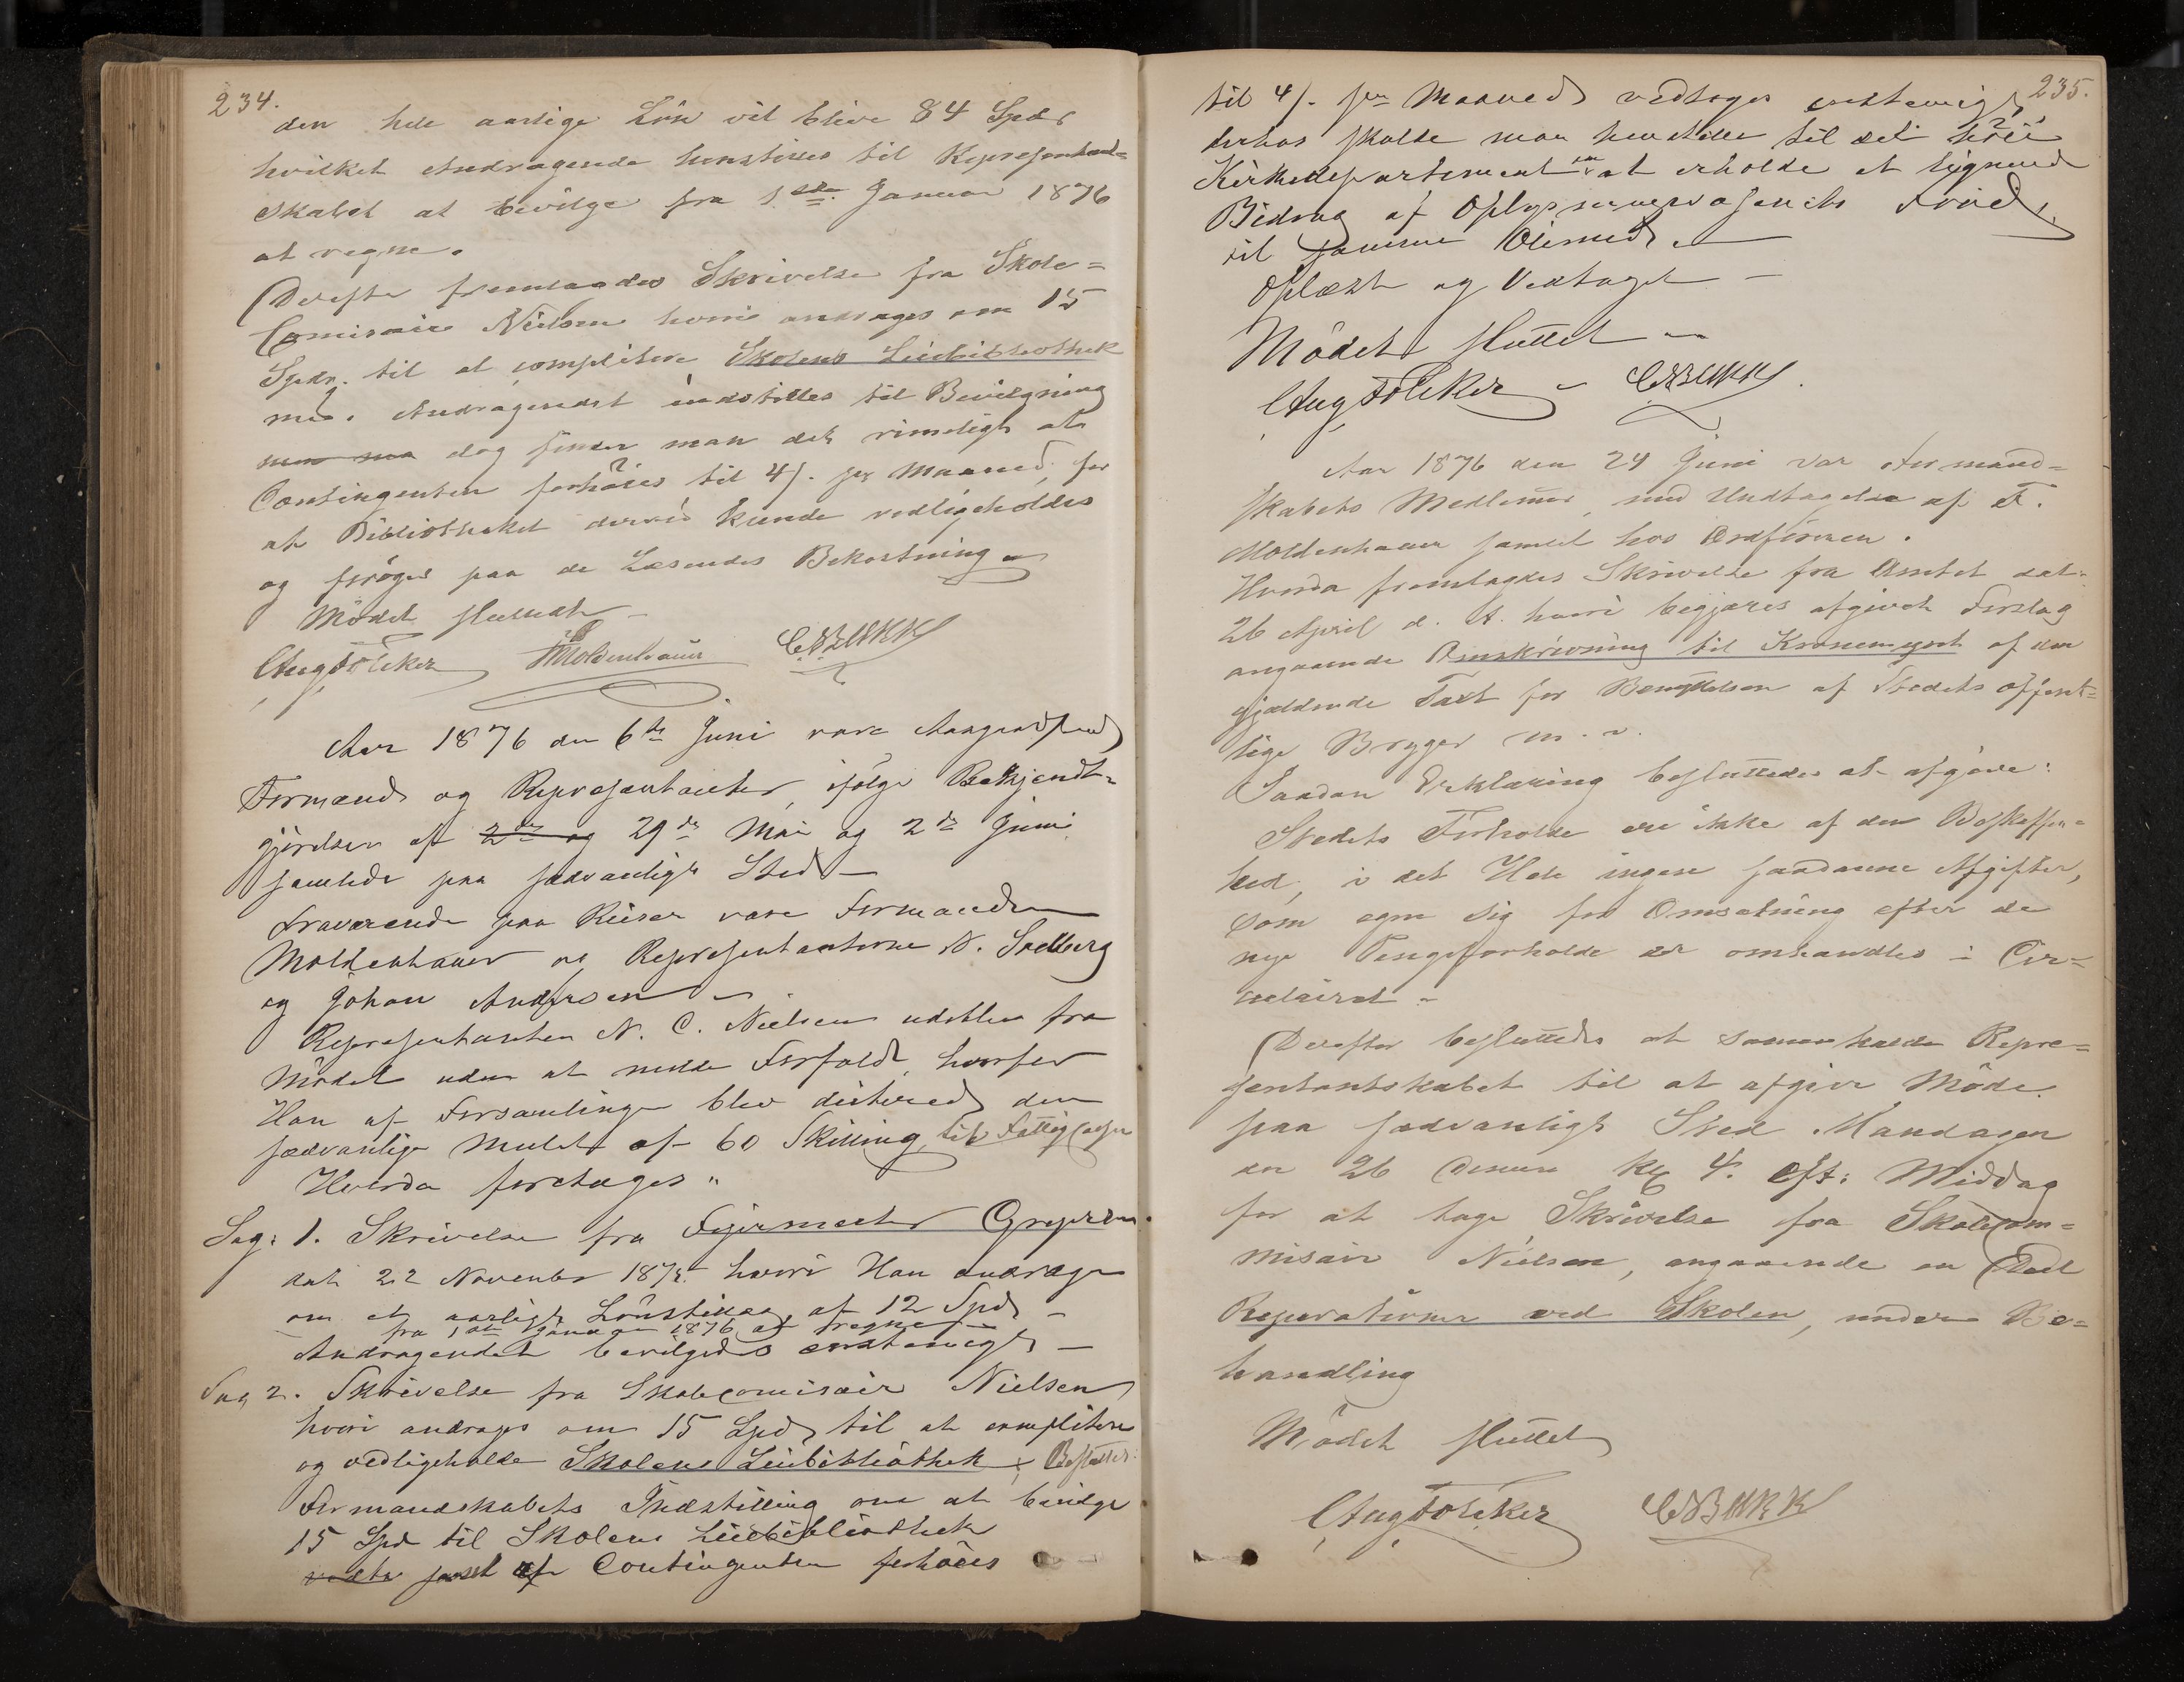 234.
den hele aarlige Løn vil blive 84 Spdr
hvilket Andragende henstilles til Repræsentant=
skabet at bevilge fra 1ste Januar 1876
at regne.
Derefter fremlagdes Skrivelse fra Skole=
Comisair Nielsen hvori andrages om 15
Spdr. til at complitere Skolens Leiebibliothek
med. Andragendet indstilles til Bevilgning
dog finder man det rimeligt at
Contingenten forhöies til 4/. pr Maaned, for
at Bibliotheket derved kunde vedligeholdes
og forøges paa de Læsendes Bekostning
Mödet sluttedt
Aug Fölcker HMoldenhauer
Aar 1876 den 6te Juni vare
Formænd og Repræsentanter, ifölge Bekjendt=
gjörelser af 2de og 29de Mai og 2de Juni
samlede paa sædvanligt Sted
Fraværende paa Reiser vare Formanden
Moldenhauer og Repræsentanterne N. Sælberg
og Johan Andersen
Repræsentanten N. C. Nielsen udeblev fra
Mödet uden at melde Forfald, hvorfor
Han af Forsamlingen blev dicteret den
sædvanlige Mulct af 60 Skilling til Fattigcassen
Hvorda foretages "
Sag: 1. Skrivelse fra Feiermester Gregersen
dat. 22 November 1875 hvori Han andrager
om et aarligt Lönstillæg af 12 Spd
fra 1ste Januar 1876 at regne
Andragendet bevilgedes eenstemigt
Sag 2. Skrivelse fra Skolecomisair Nielsen
hvori andrages om 15 Spd til at complitere
og vedligeholde Skolens Leiebibliothek; Besluttet:
Formandskabets Indstilling om at bevilge
15 Spd til Skolens Leiebibliothek
samt at Contingenten forhöies
235.
til 4/. pr Maaned vedtoges eenstemigt,
derhos skulde man henstille til det höie
Kirkedepartement om at erholde et lignende
Bidrag af Oplysningsvæsenets Fond
til samme Öiemed.
Oplæst og Vedtaget
Mödet sluttet
Aug Fölcker
Aar 1876 den 24 Juni var Formand=
skabets Medlemer, med Undtagelse af F.
Moldenhauer samlet hos Ordföreren.
Hvorda fremlagdes Skrivelse fra Amtet dat.
26 April d. A. hvori begjæres afgivet Forslag
angaaende Omskrivning til Kronemynt af den
gjældende Taxt for Benyttelsen af Stedets offent=
lige Brygger m. v.
Saadan Erklæring besluttedes at afgive:
Stedets Forholde ere ikke af den Beskaffen=
hed, i det Hele ingen saadanne Afgifter,
som egne sig for Omsætning efter de
nye Pengeforholde der omhandles i Cir=
culairet
Derefter besluttedes at samenkalde Repræ=
sentantskabet til at afgive Möde
paa sædvanligt Sted Mandagen
den 26 Kl 4. Eft: Middag
for at tage Skrivelse fra Skolecom=
misair Nielsen, angaaende en Deel
Reparationer ved Skolen, under Be=
handling
Mödet sluttet
Aug Fölcker